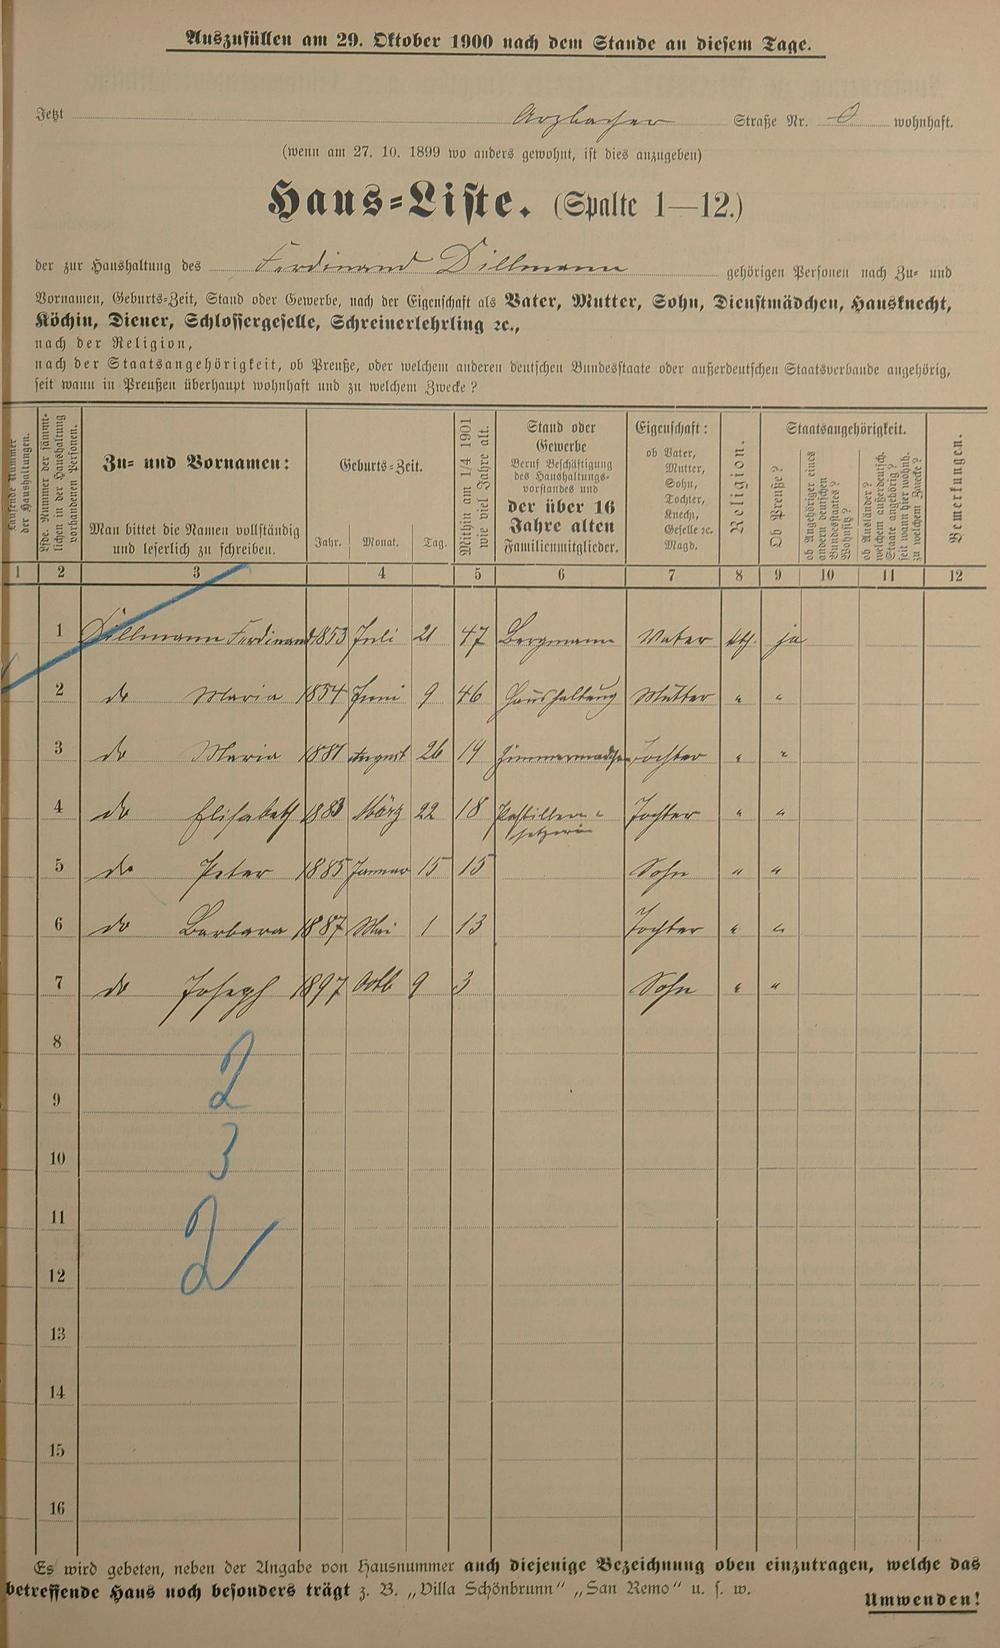 Auszufüllen am 29. Oktober 1900 nach dem Stande an diesem Tage.
Jetzt Arzbacher Straße Nr. 8 wohnhaft.
(wenn am 27. 10. 1899 wo anders gewohnt, ist dies anzugeben)
Haus-Liste. (Spalte 1—12.)
der zur Haushaltung des Ferdinand Dillmann gehörigen Personen nach Zu- und
Vornamen, Geburts-Zeit, Stand oder Gewerbe, nach der Eigenschaft als Vater, Mutter, Sohn, Dienstmädchen, Hausknecht,
Köchin, Diener, Schlossergeselle, Schreinerlehrling ꝛc.,
nach der Religion,
nach der Staatsangehörigkeit, ob Preuße, oder welchem anderen deutschen Bundesstaate oder außerdeutschen Staatsverbande angehörig,
seit wann in Preußen überhaupt wohnhaft und zu welchem Zwecke?
Laufende Nummer der Haushaltungen.
Lfde. Nummer der sämmtlichen in der Haushaltung vorhandenen Personen.
Zu- und Vornamen:
Man bittet die Namen vollständig
und leserlich zu schreiben.
Geburts-Zeit.
Jahr. Monat. Tag.
Mithin am 1/4 1901 wie viel Jahre alt.
Stand oder
Gewerbe
Beruf Beschäftigung
des Haushaltungs-
vorstandes und
der über 16
Jahre alten
Familienmitglieder.
Eigenschaft:
ob Vater,
Mutter,
Sohn,
Tochter,
Knecht,
Geselle ꝛc.
Magd.
Religion.
Staatsangehörigkeit.
Ob Preuße?
ob Angehöriger eines andern deutschen Bundesstaates? Wohnsitz?
ob Ausländer? welchem außerdeutsch. Staate angehörig? seit wann hier wohnh. zu welchem Zwecke?
Bemerkungen.
1 2 3 4 5 6 7 8 9 10 11 12
1 Dillmann Ferdinand 1853 Juli 21 47 Bergmann Vater kth. ja
2 do Maria 1854 Juni 9 46 Haushaltung Mutter " "
3 do Maria 1881 August 26 19 Zimmermädchen Tochter " "
4 do Elisabeth 1883 März 22 18 Pastillen- Tochter " "
setzerin
5 do Peter 1885 Januar 15 15 Sohn " "
6 do Barbara 1887 Mai 1 13 Tochter " "
7 do Joseph 1897 Octb 9 3 Sohn " "
8
2
9
10 3
11
2
12
13
14
15
16
Es wird gebeten, neben der Angabe von Hausnummer auch diejenige Bezeichnung oben einzutragen, welche das
betreffende Haus noch besonders trägt z. B. „Villa Schönbrunn" „San Remo" u. s. w.
Umwenden!